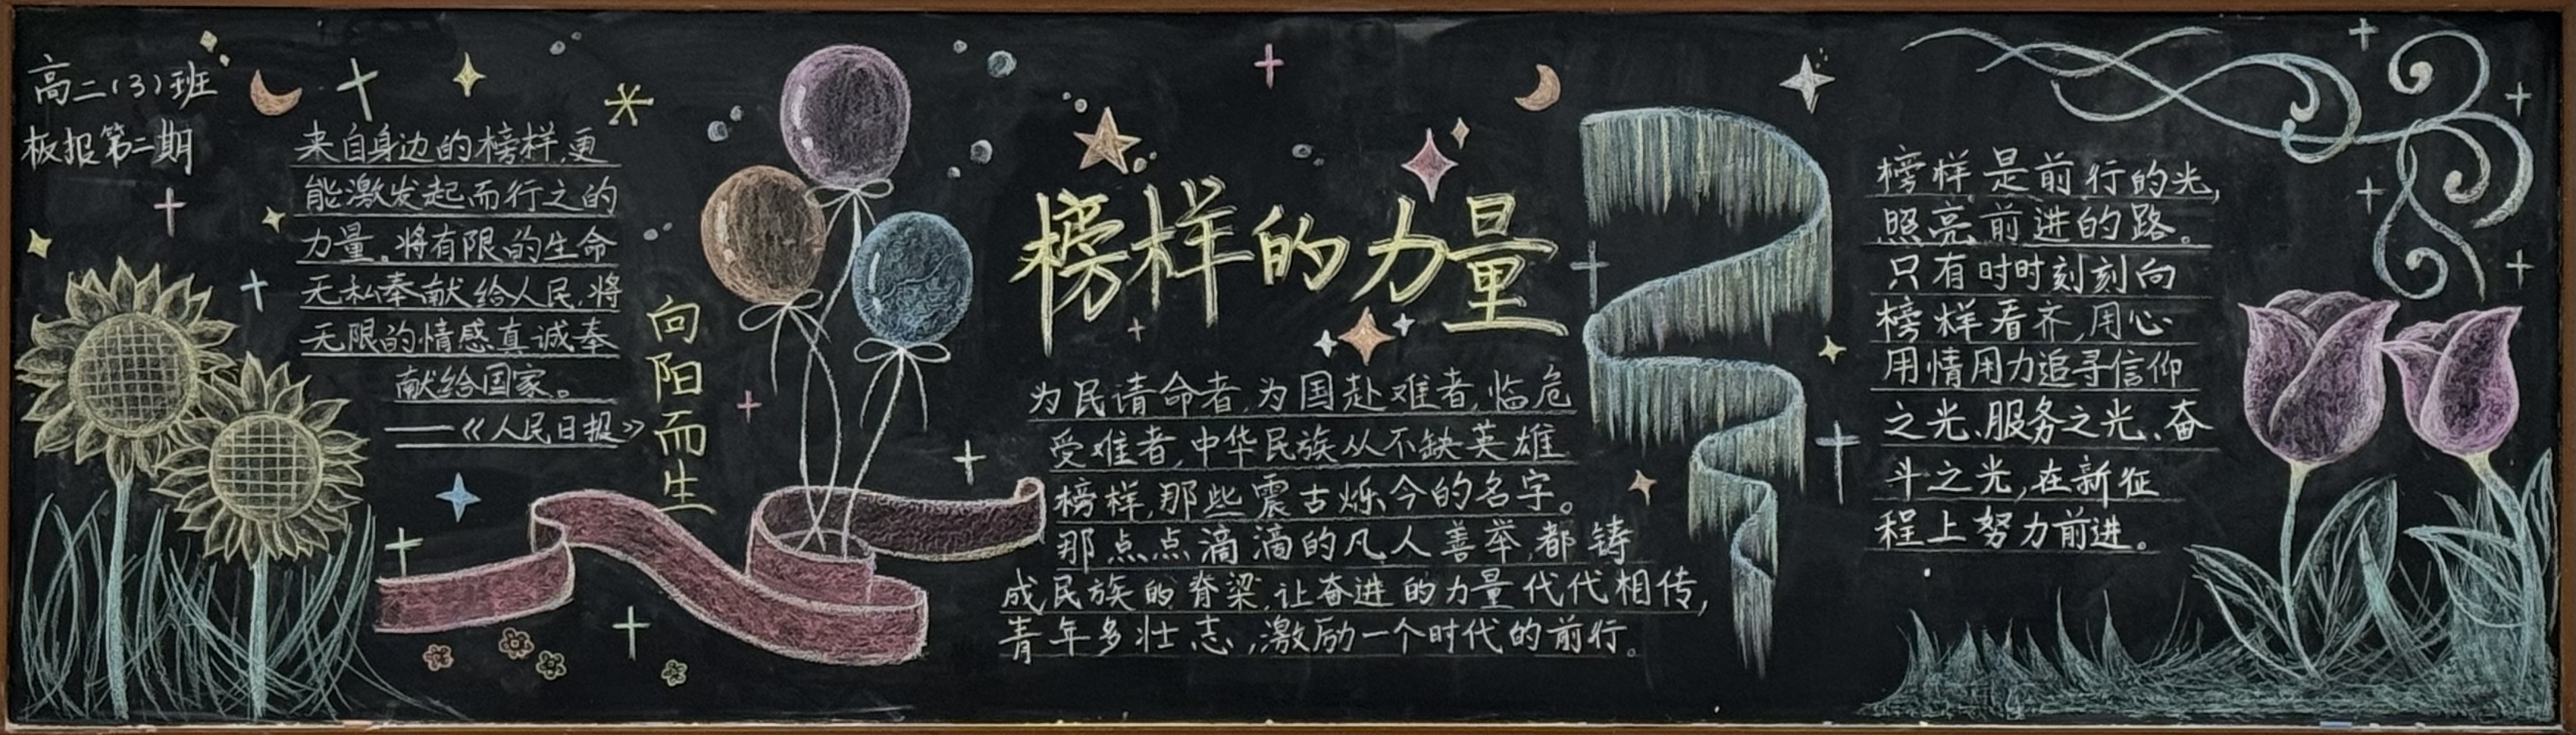 高二(3)班
板报第二期
来自身边的榜样,更
能激发起而行之的
力量。将有限的生命
无私奉献给人民,将
无限的情感真诚奉
献给国家。
——《人民日报》
向阳而生
榜样的力量
为民请命者,为国赴难者,临危
受难者,中华民族从不缺英雄
榜样,那些震古烁今的名字。
那点点滴滴的凡人善举,都铸
成民族的脊梁,让奋进的力量代代相传,
青年多壮志,激励一个时代的前行。
榜样是前行的光,
照亮前进的路。
只有时时刻刻向
榜样看齐,用心
用情用力追寻信仰
之光、服务之光、奋
斗之光,在新征
程上努力前进。